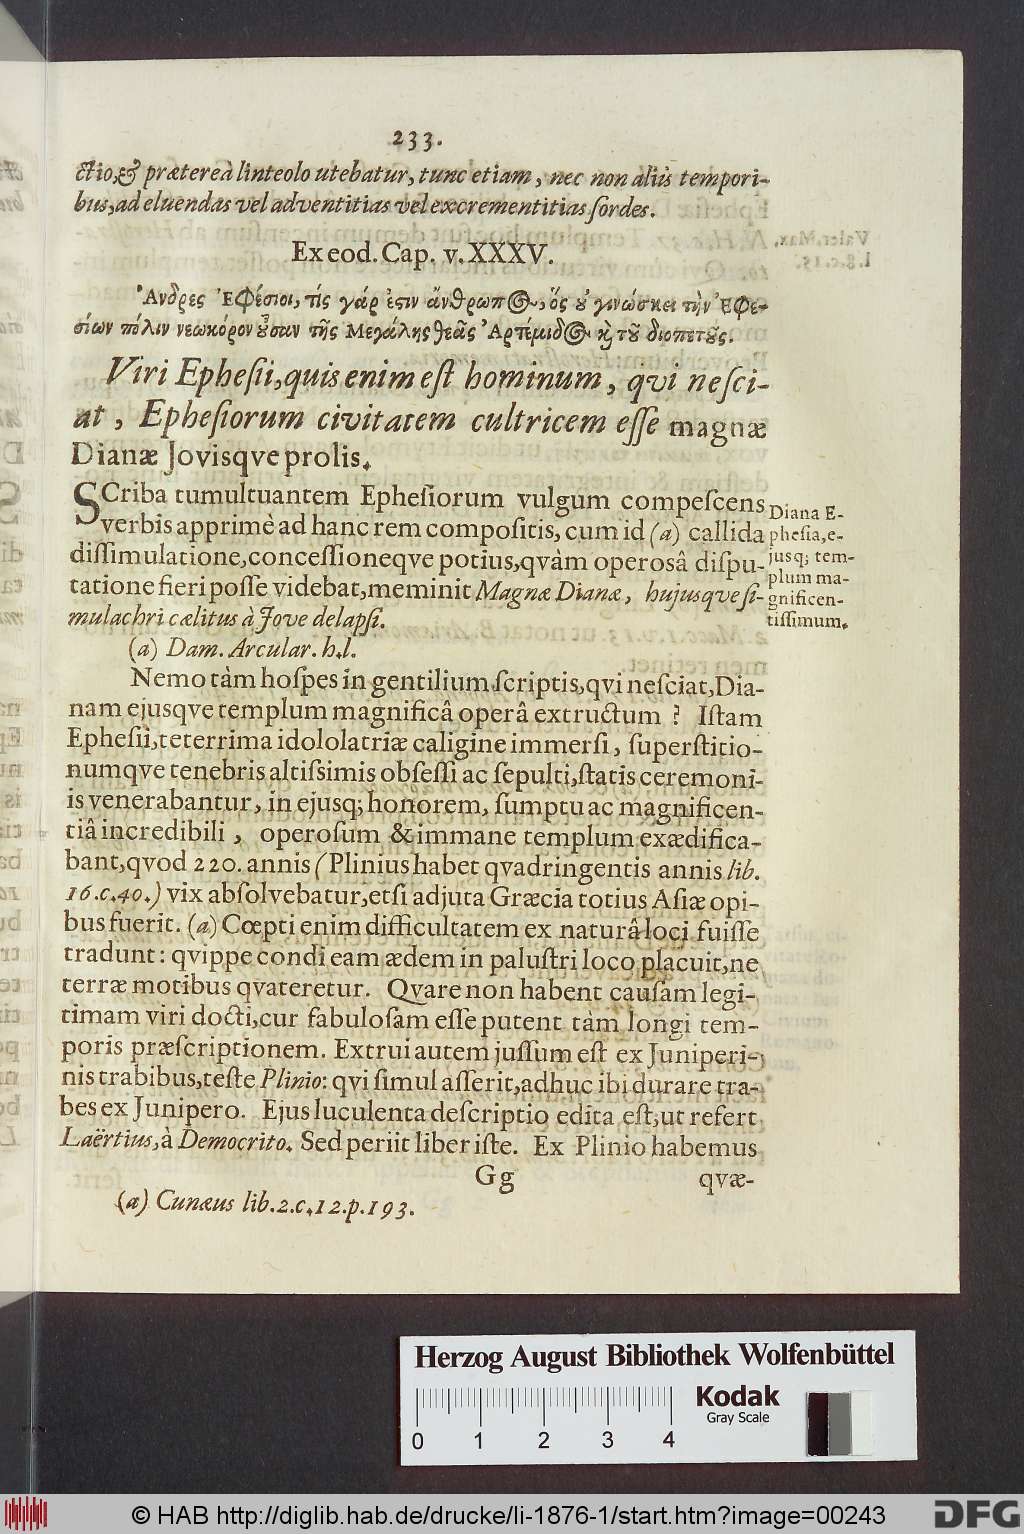 233.
ctio,& prætereà linteolo utebatur, tunc etiam, nec non aliis tempori-
bus, ad eluendas vel adventitias vel excrementitias ſordes.
Ex eod. Cap. v. XXXV.
Ἄνδρες Ἐφέσιοι, τίς γάρ ἐϛιν ἄνθρωπ@, ὅς ȣ γινώσκει τὴν Ἐφε-
σίων πόλιν νεωκόρον ȣ̓͂σαν τῆς Μεγάλης θεᾶς Ἀρτέμιδ@ κὶ τȣ͂ διοπετȣ͂ς.
Viri Epheſii, quis enim eſt hominum, qvi neſci-
at, Epheſiorum civitatem cultricem eſſe magnæ
Dianæ Jovisqve prolis.
SCriba tumultuantem Epheſiorum vulgum compeſcens
verbis apprimè ad hanc rem compoſitis, cum id (a) callida
diſſimulatione, conceſſioneqve potius, qvàm operosâ diſpu-
tatione fieri poſſe videbat, meminit Magnæ Dianæ, hujusque ſi-
mulachri cælitus à Jove delapſi.
Diana E-
pheſia, e-
jusq; tem-
plum ma-
gnificen-
tiſſimum.
(a) Dam. Arcular. h.l.
Nemo tàm hoſpes in gentilium ſcriptis, qvi neſciat, Dia-
nam ejusqve templum magnificâ operâ extructum ? Iſtam
Epheſii, teterrima idololatriæ caligine immerſi, ſuperſtitio-
numqve tenebris altiſsimis obſeſſi ac ſepulti, ſtatis ceremoni-
is venerabantur, in ejusq; honorem, ſumptu ac magnificen-
tiâ incredibili, operoſum & immane templum exædifica-
bant, qvod 220. annis (Plinius habet qvadringentis annis lib.
16.c.40.) vix abſolvebatur, etſi adjuta Græcia totius Aſiæ opi-
bus fuerit. (a) Cœpti enim difficultatem ex naturâ loci fuiſſe
tradunt: qvippe condi eam ædem in paluſtri loco placuit, ne
terræ motibus qvateretur. Qvare non habent cauſam legi-
timam viri docti, cur fabuloſam eſſe putent tàm longi tem-
poris præſcriptionem. Extrui autem juſſum eſt ex Juniperi-
nis trabibus, teſte Plinio: qvi ſimul aſſerit, adhuc ibi durare tra-
bes ex Junipero. Ejus luculenta deſcriptio edita eſt, ut refert
Laërtius, à Democrito. Sed periit liber iſte. Ex Plinio habemus
Gg qvæ-
(a) Cunæus lib.2.c.12.p.193.
Herzog August Bibliothek Wolfenbüttel
0 1 2 3 4
Kodak
Gray Scale
© HAB http://diglib.hab.de/drucke/li-1876-1/start.htm?image=00243
DFG